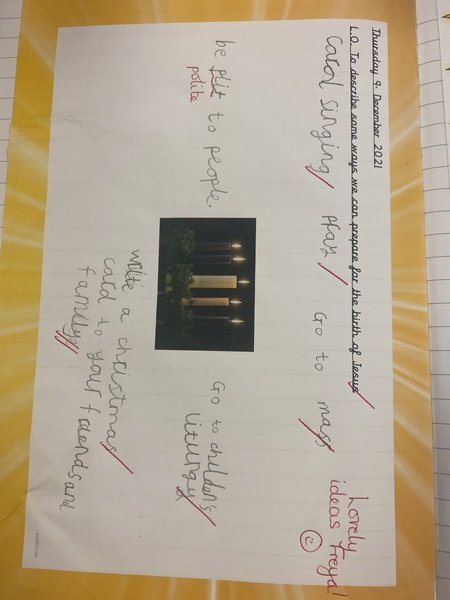 Thursday 9. December 2021
L.O. To describe some ways we can prepare for the birth of Jesus
Lovely
ideas Freya!
Carol singing pray Go to mass
be plit to people.
polite
Go to children's
liturgy
write a christmas
card to your friends and
family